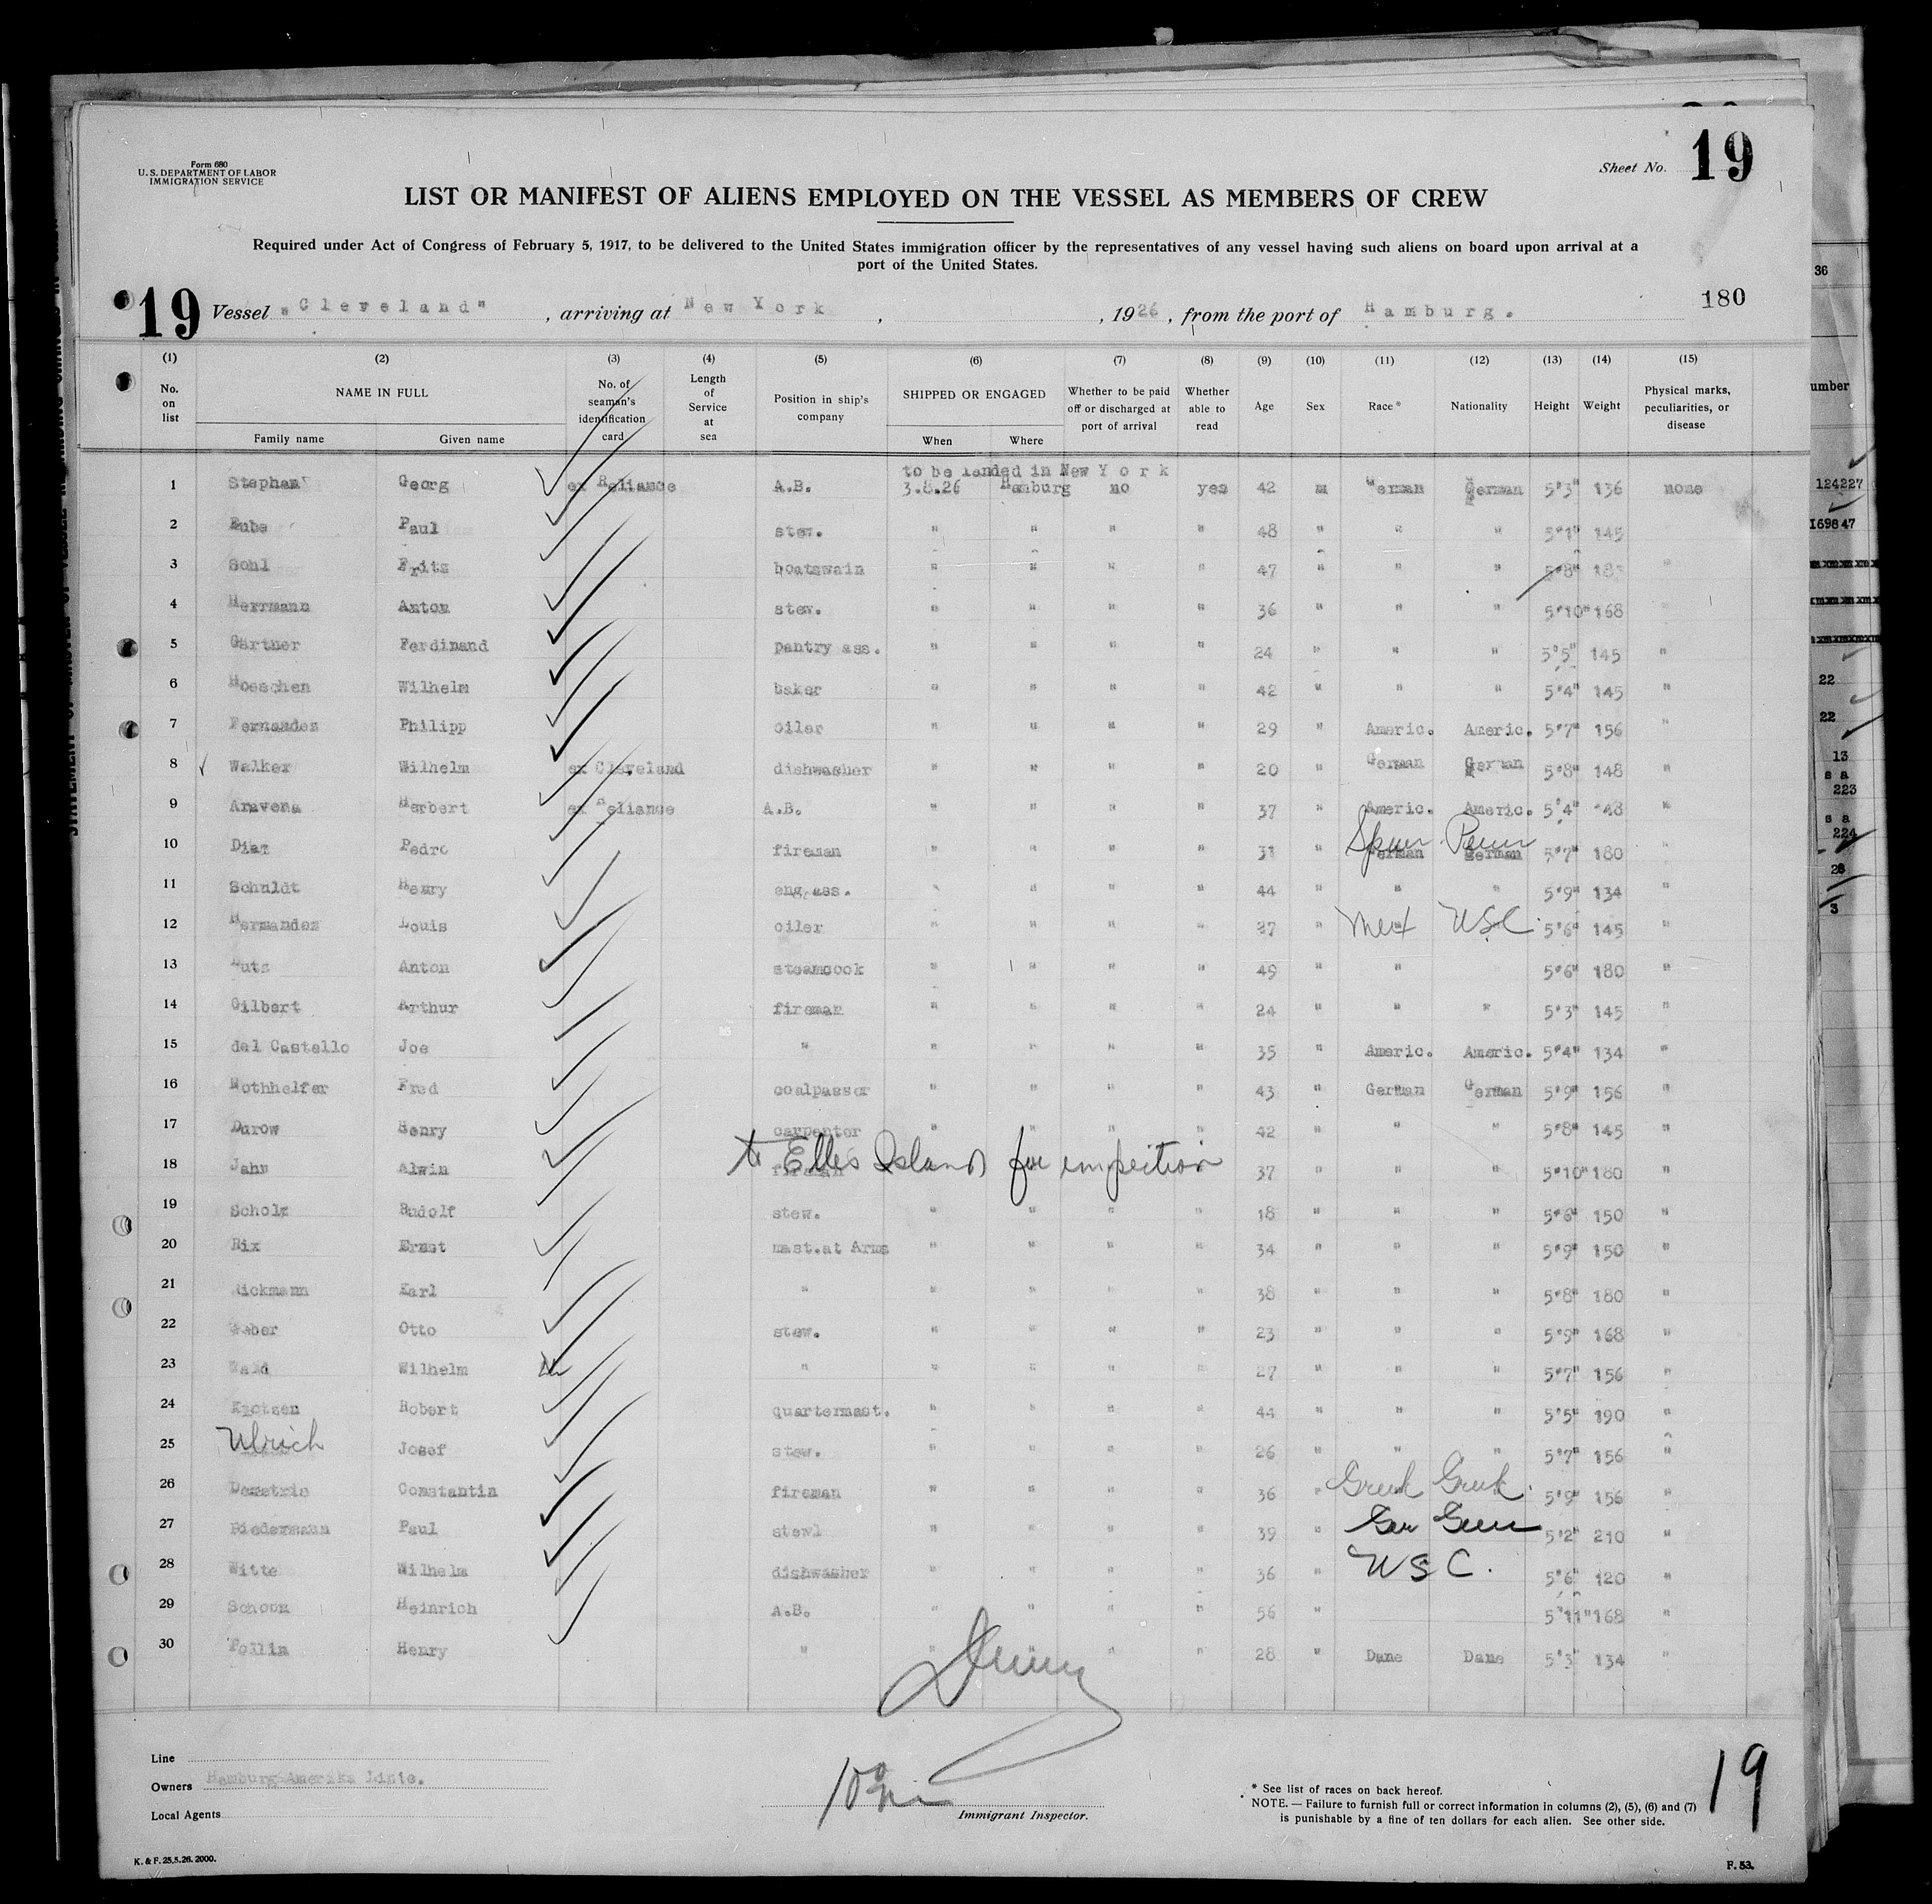 Form 680
U. S. DEPARTMENT OF LABOR
IMMIGRATION SERVICE
Sheet No. 19
LIST OR MANIFEST OF ALIENS EMPLOYED ON THE VESSEL AS MEMBERS OF CREW
Required under Act of Congress of February 5, 1917, to be delivered to the United States immigration officer by the representatives of any vessel having such aliens on board upon arrival at a
port of the United States.
19 Vessel "Cleveland", arriving at New York, , 1926, from the port of Hamburg. 180
(1) (2) (3) (4) (5) (6) (7) (8) (9) (10) (11) (12) (13) (14) (15)
No. on list NAME IN FULL Family name Given name No. of seaman's identification card Length of Service at sea Position in ship's company SHIPPED OR ENGAGED When Where Whether to be paid off or discharged at port of arrival Whether able to read Age Sex Race* Nationality Height Weight Physical marks, peculiarities, or disease
to be landed in New York
1 Stephan Georg ex Reliance A.B. 3.8.26 Hamburg no yes 42 m German German 5'3" 136 none
2 Paul stew. " " " " 48 " " " 5'1" 145
3 Sohl Fritz boatswain " " " " 47 " " " 5'8" "
4 Herrmann Anton stew. " " " " 36 " " " 5'10" 168
5 Gärtner Ferdinand pantry ass. " " " " 24 " " " 5'5" 145 "
6 Hoeschen Wilhelm baker " " " " 42 " " " 5'4" 145 "
7 Fernandez Philipp oiler " " " " 29 " Americ. Americ. 5'7" 156 "
8 Walker Wilhelm ex Cleveland dishwasher " " " " 20 " German German 5'8" 148 "
9 Aravena Herbert ex Reliance A.B. " " " " 37 " Americ. Americ. 5'4" "
10 Diaz Pedro fireman " " " " 31 " German German 5'7" 180 "
11 Schuldt Henry eng.ass. " " " " 44 " " " 5'9" 134 "
12 Hernandez Louis oiler " " " " 27 " Mex USC. 5'6" 145 "
13 Anton steamcook " " " " 49 " " 5'6" 180 "
14 Gilbert Arthur fireman " " " " 24 " " " 5'3" 145 "
15 del Castello Joe " " " " " 35 " Americ. Americ. 5'4" 134 "
16 Nothhelfer Fred coalpasser " " " " 43 " German German 5'9" 156 "
17 Durow Henry carpenter " " " " 42 " " " 5'8" 145 "
to Ellis Island for inspection
18 Jahn Alwin fireman 37 " " " 5'10" 180 "
19 Scholz Rudolf stew. " " " " 18 " " " 5'6" 150 "
20 Rix Ernst mast.at Arms " " " " 34 " " " 5'9" 150 "
21 Karl " " " " " 38 " " " 5'8" 180 "
22 Otto stew. " " " " 23 " " " 5'9" 168 "
23 Wilhelm " " " " " 27 " " " 5'7" 156 "
24 Robert quartermast. " " " " 44 " " " 5'5" 190 "
25 Ulrich Josef stew. " " " " 26 " " " 5'7" 156 "
26 Constantin fireman " " " " 36 " Greek Greek. 5'9" 156 "
27 Biedermann Paul " " " " 39 " Ger Ger 5'2" 210 "
28 Witte Wilhelm dishwasher " " " " 36 " USC. 5'6" 120 "
29 Schoon Heinrich A.B. " " " " 56 " 5'11" 168 "
30 Henry " " " " " 28 " Dane Dane 5'3" 134 "
Line
Owners Hamburg-Amerika Linie.
Local Agents
Immigrant Inspector.
* See list of races on back hereof.
NOTE. — Failure to furnish full or correct information in columns (2), (5), (6) and (7)
is punishable by a fine of ten dollars for each alien. See other side.
19
K. & F. 25.5.26. 2000.
F. 53.
36
umber
124227
16984 7
22
22
13
s a
223
s a
224
3